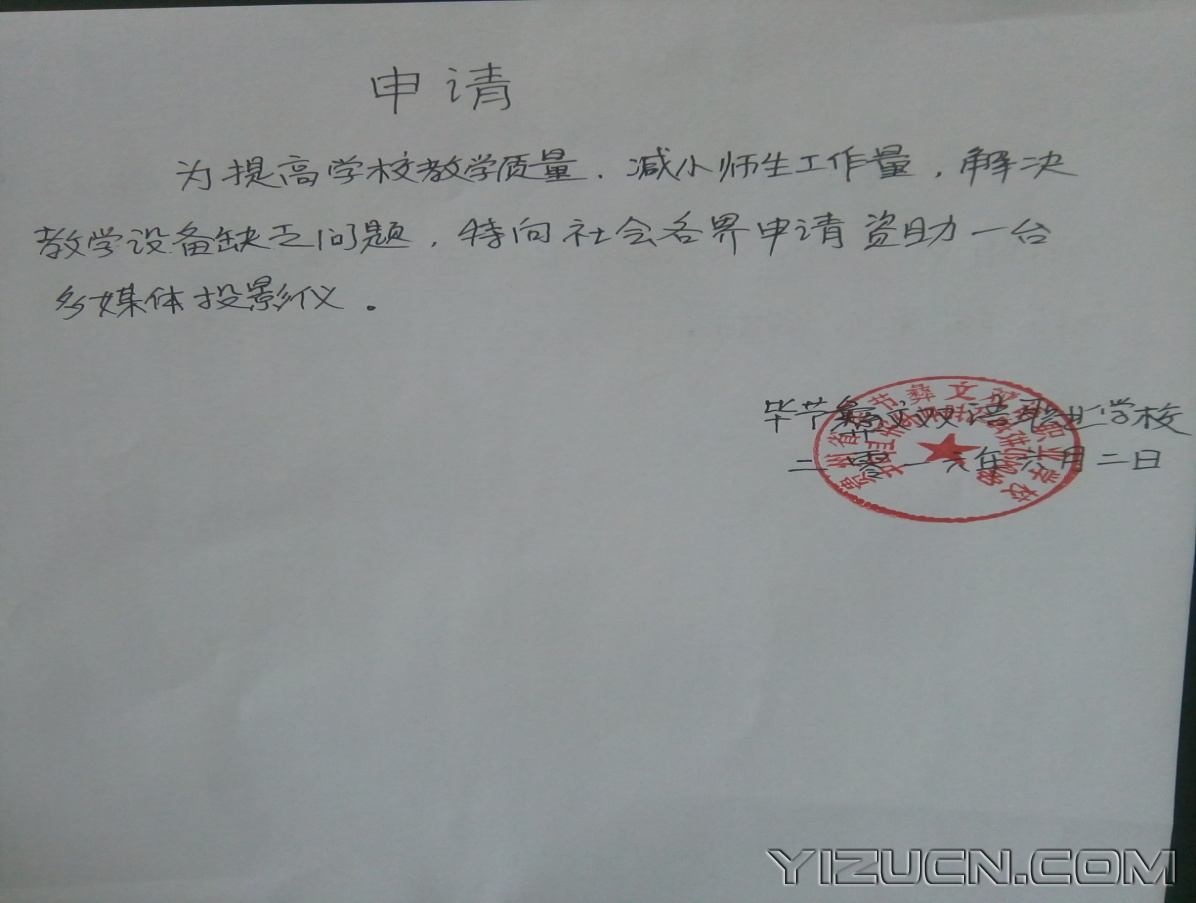 申请
为提高学校教学质量、减小师生工作量，解决
教学设备缺乏问题，特向社会各界申请资助一台
多媒体投影仪。
毕节彝文双语职业学校
二零一六年六月二日
YIZUCN.COM